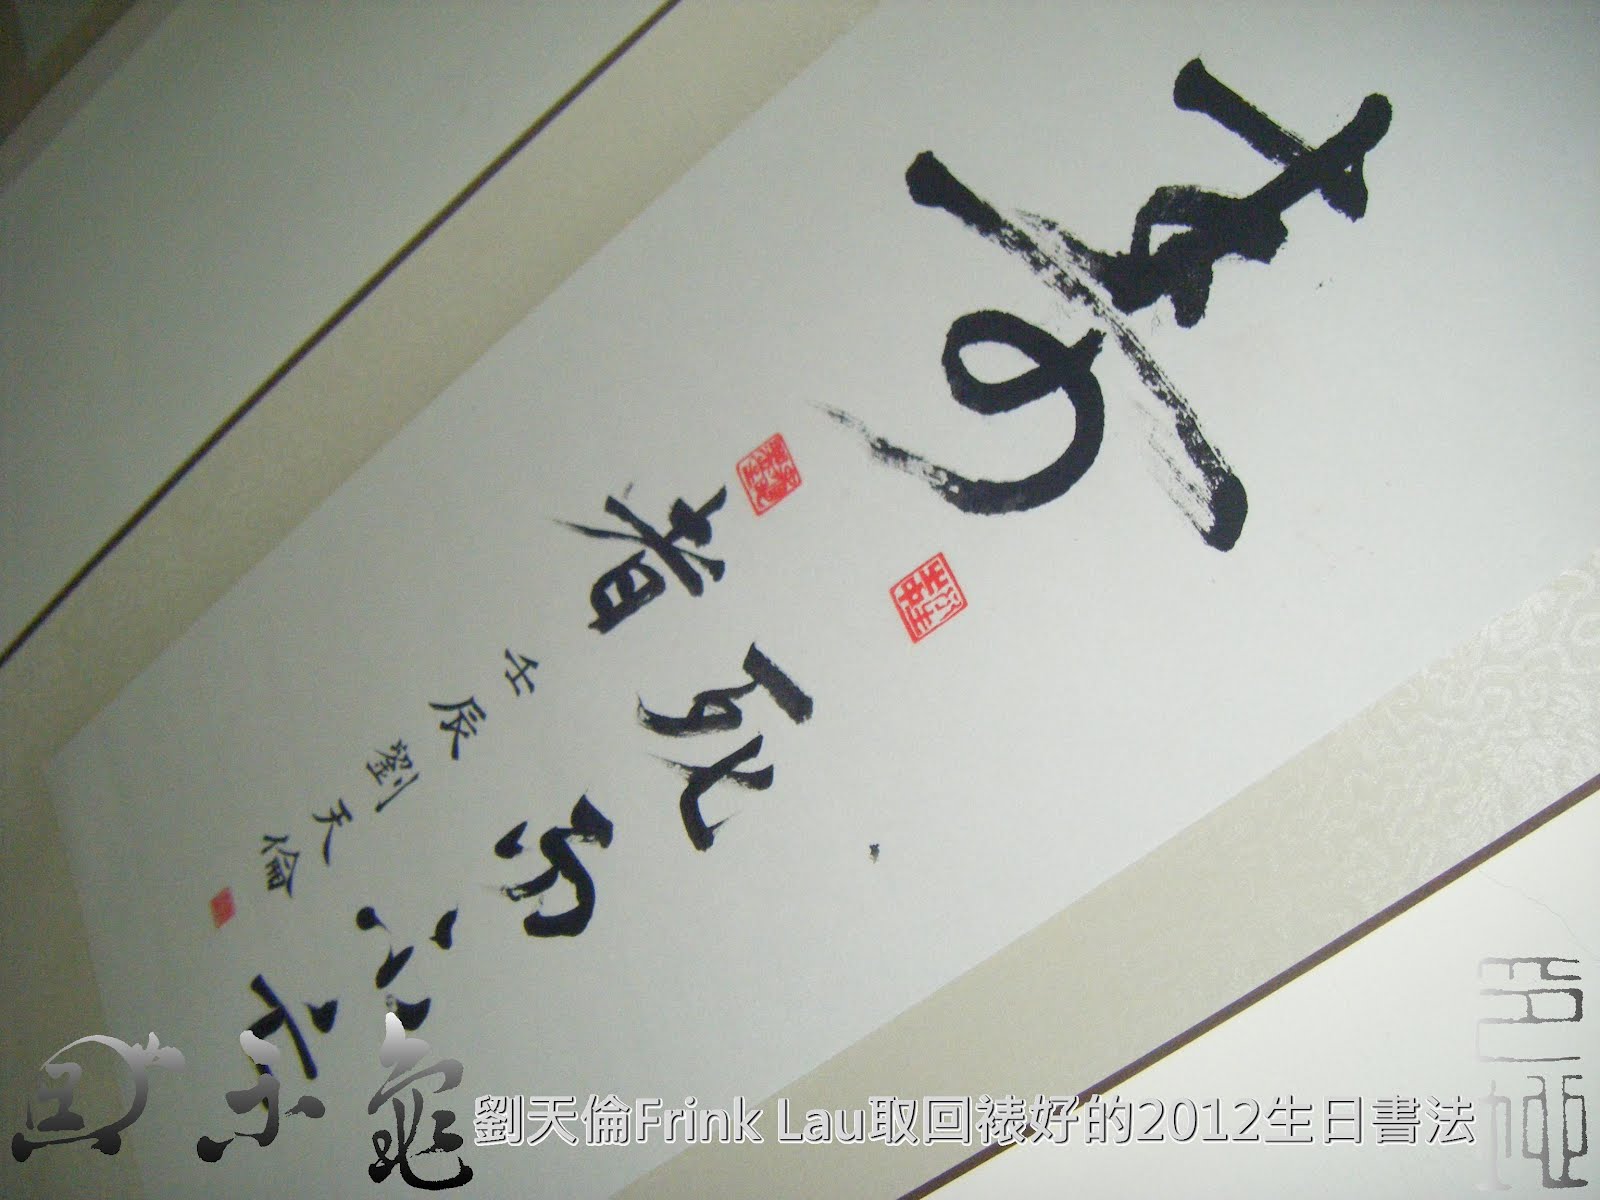 壽
死而不亡
者
壬辰劉天倫
劉天倫Frink Lau取回裱好的2012生日書法